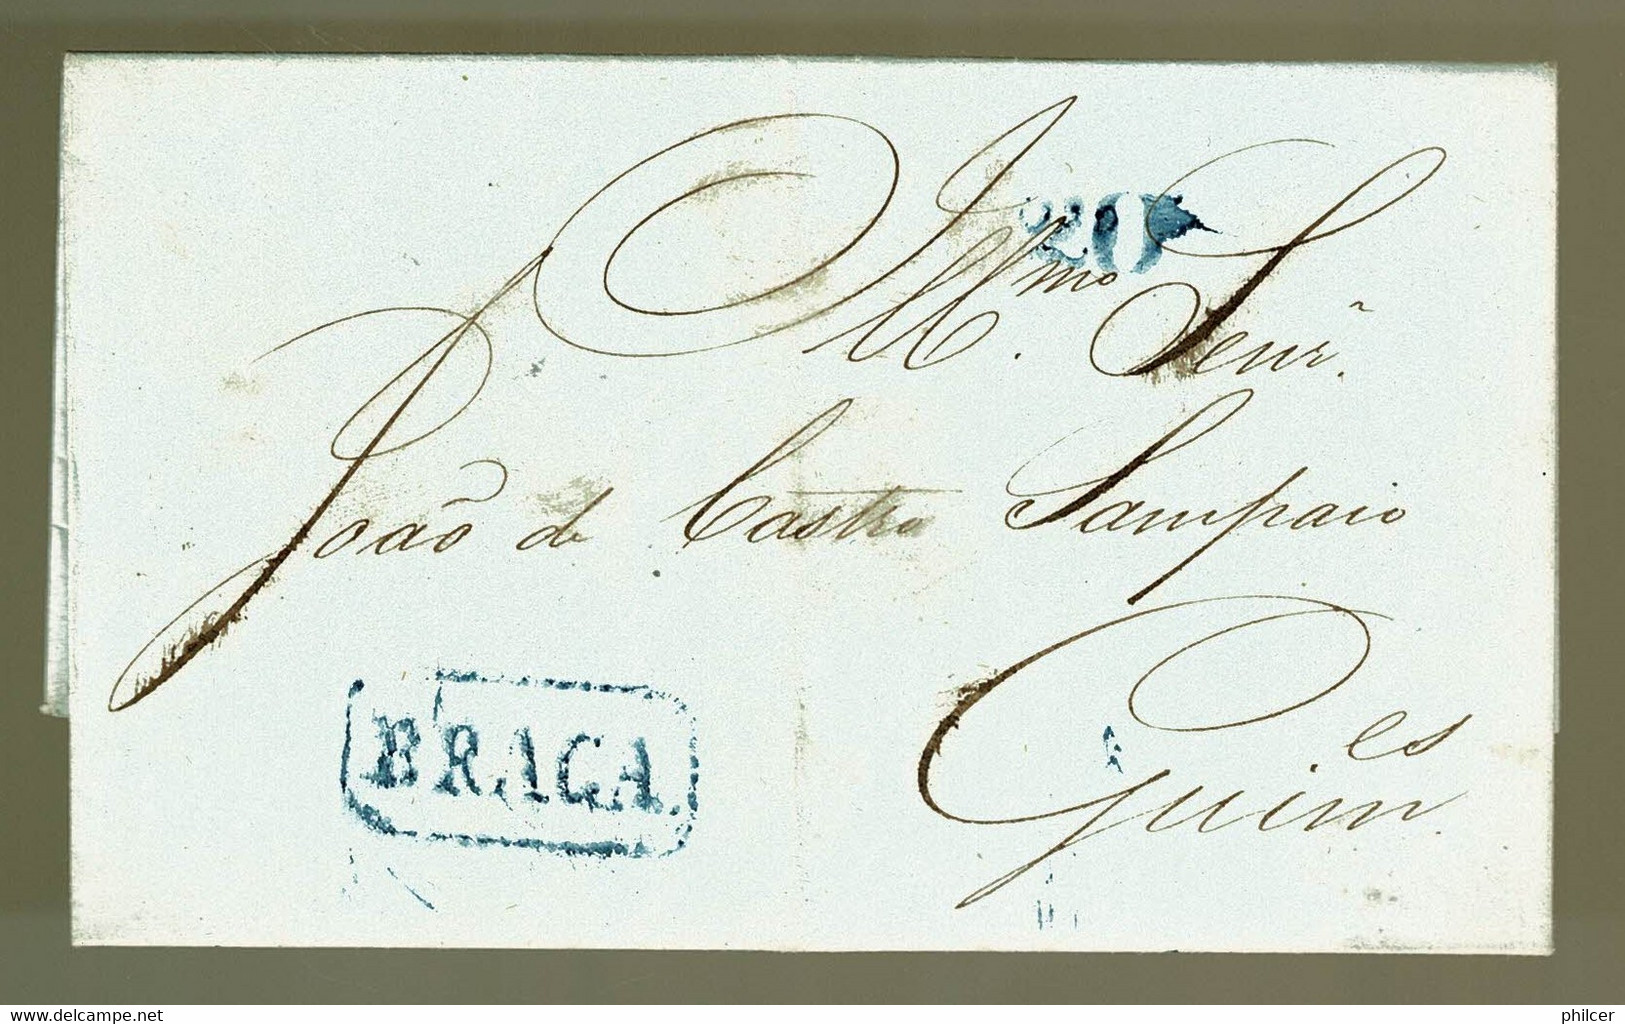 20
Illmo. Senr.
João de Castro Sampaio
Guimes
BRAGA
www.delcampe.net
philcer